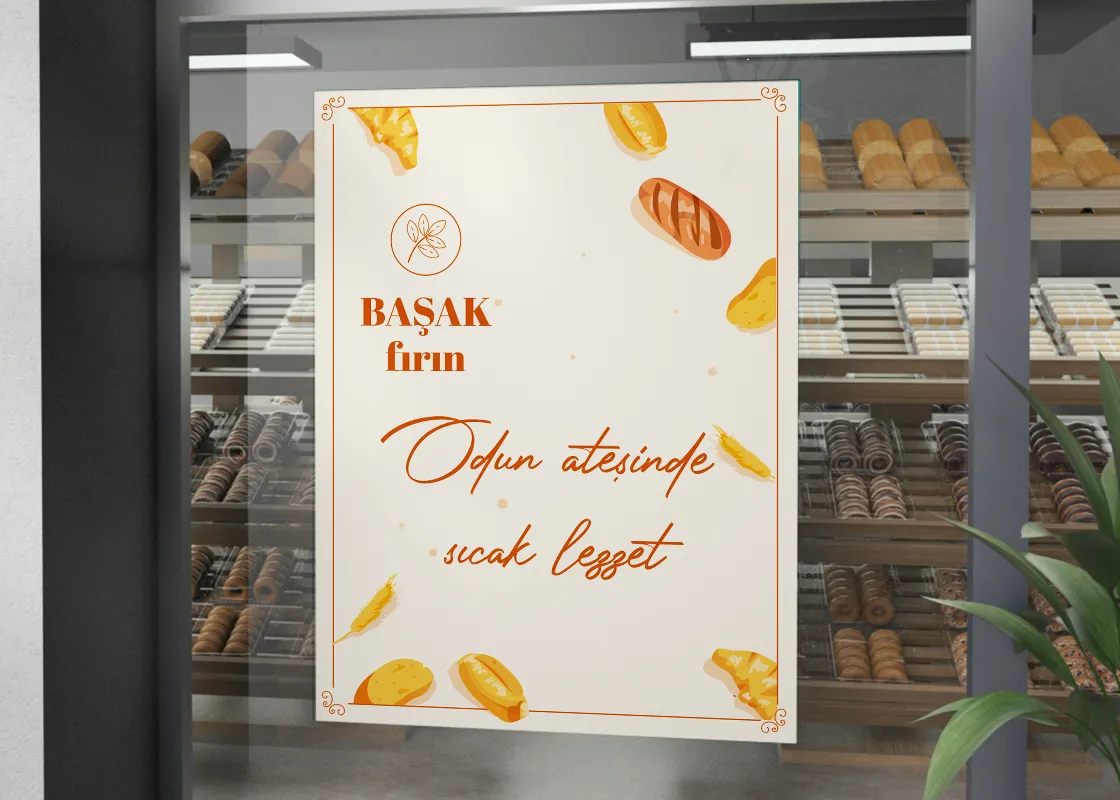 BAŞAK
fırın
Odun ateşinde
sıcak lezzet